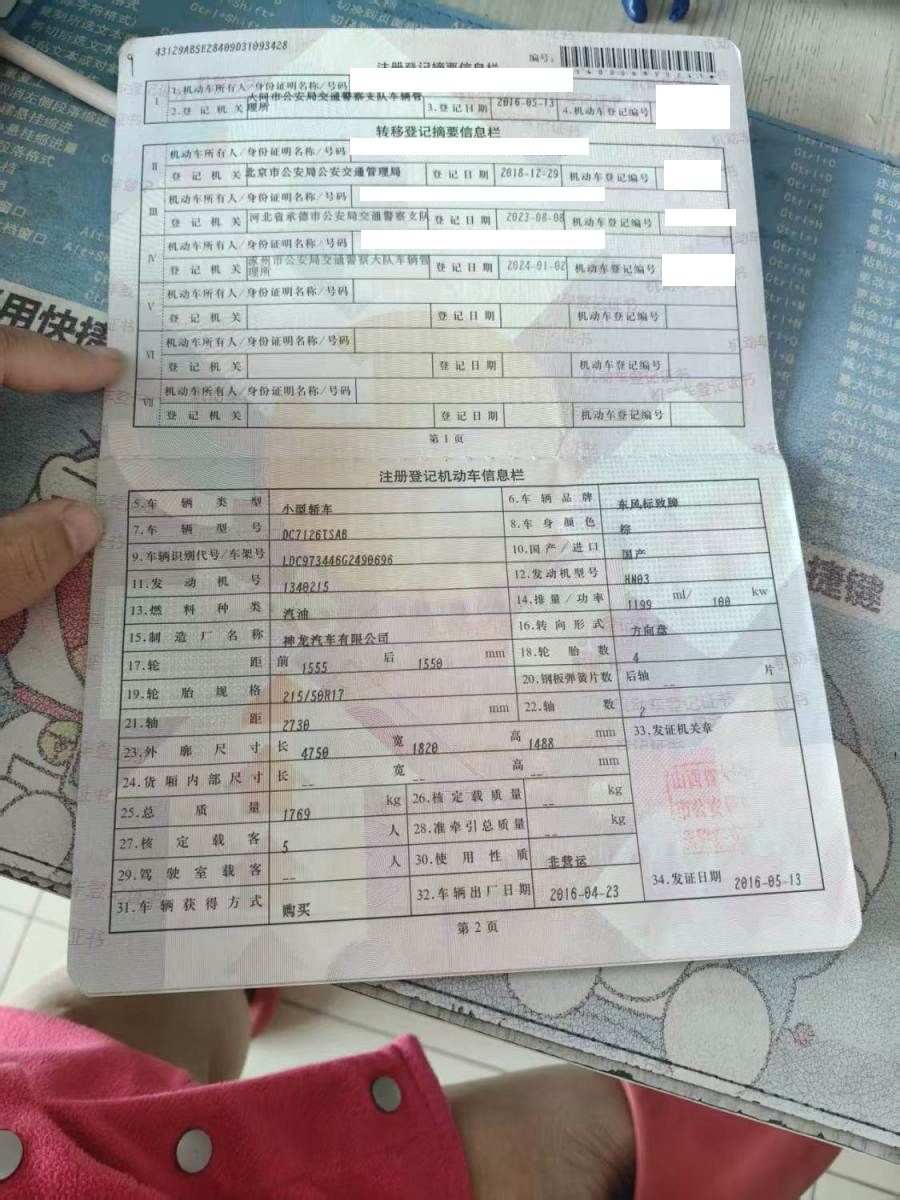 43129ABSE28409D31093428
编号:
注册登记摘要信息栏
I 1.机动车所有人/身份证明名称/号码
2.登记机关 大同市公安局交通警察支队车辆管理所 3.登记日期 2016-05-13 4.机动车登记编号
转移登记摘要信息栏
II 机动车所有人/身份证明名称/号码
登记机关 北京市公安局公安交通管理局 登记日期 2018-12-29 机动车登记编号
III 机动车所有人/身份证明名称/号码
登记机关 河北省承德市公安局交通警察支队 登记日期 2023-08-08 机动车登记编号
IV 机动车所有人/身份证明名称/号码
登记机关 涿州市公安局交通警察大队车辆管理所 登记日期 2024-01-02 机动车登记编号
V 机动车所有人/身份证明名称/号码
登记机关 登记日期 机动车登记编号
VI 机动车所有人/身份证明名称/号码
登记机关 登记日期 机动车登记编号
VII 机动车所有人/身份证明名称/号码
登记机关 登记日期 机动车登记编号
第1页
注册登记机动车信息栏
5.车辆类型 小型轿车 6.车辆品牌 东风标致牌
7.车辆型号 DC7126TSAB 8.车身颜色 棕
9.车辆识别代号/车架号 LDC973446G2490696 10.国产/进口 国产
11.发动机号 1340215 12.发动机型号 HN03
13.燃料种类 汽油 14.排量/功率 1199 ml/ 100 kw
15.制造厂名称 神龙汽车有限公司 16.转向形式 方向盘
17.轮距 前 1555 后 1550 mm 18.轮胎数 4
19.轮胎规格 215/50R17 20.钢板弹簧片数 后轴 -- 片
21.轴距 2730 mm 22.轴数 2
23.外廓尺寸 长 4750 宽 1820 高 1488 mm 33.发证机关章
24.货厢内部尺寸 长 -- 宽 -- 高 -- mm
25.总质量 1769 kg 26.核定载质量 -- kg
27.核定载客 5 人 28.准牵引总质量 -- kg
29.驾驶室载客 -- 人 30.使用性质 非营运
31.车辆获得方式 购买 32.车辆出厂日期 2016-04-23 34.发证日期 2016-05-13
第2页
用快捷
捷键